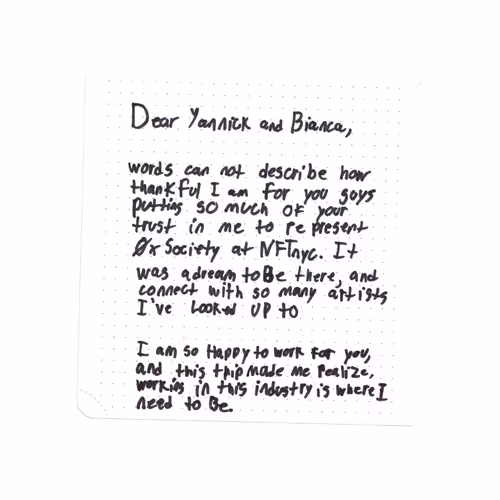 Dear Yannick and Bianca,
words can not describe how
thankful I am for you guys
putting so much of your
trust in me to represent
0x Society at NFTnyc. It
was a dream to Be there, and
connect with so many artists
I've Looked UP to
I am so Happy to work for you,
and this trip made me realize,
working in this industry is where I
need to Be.